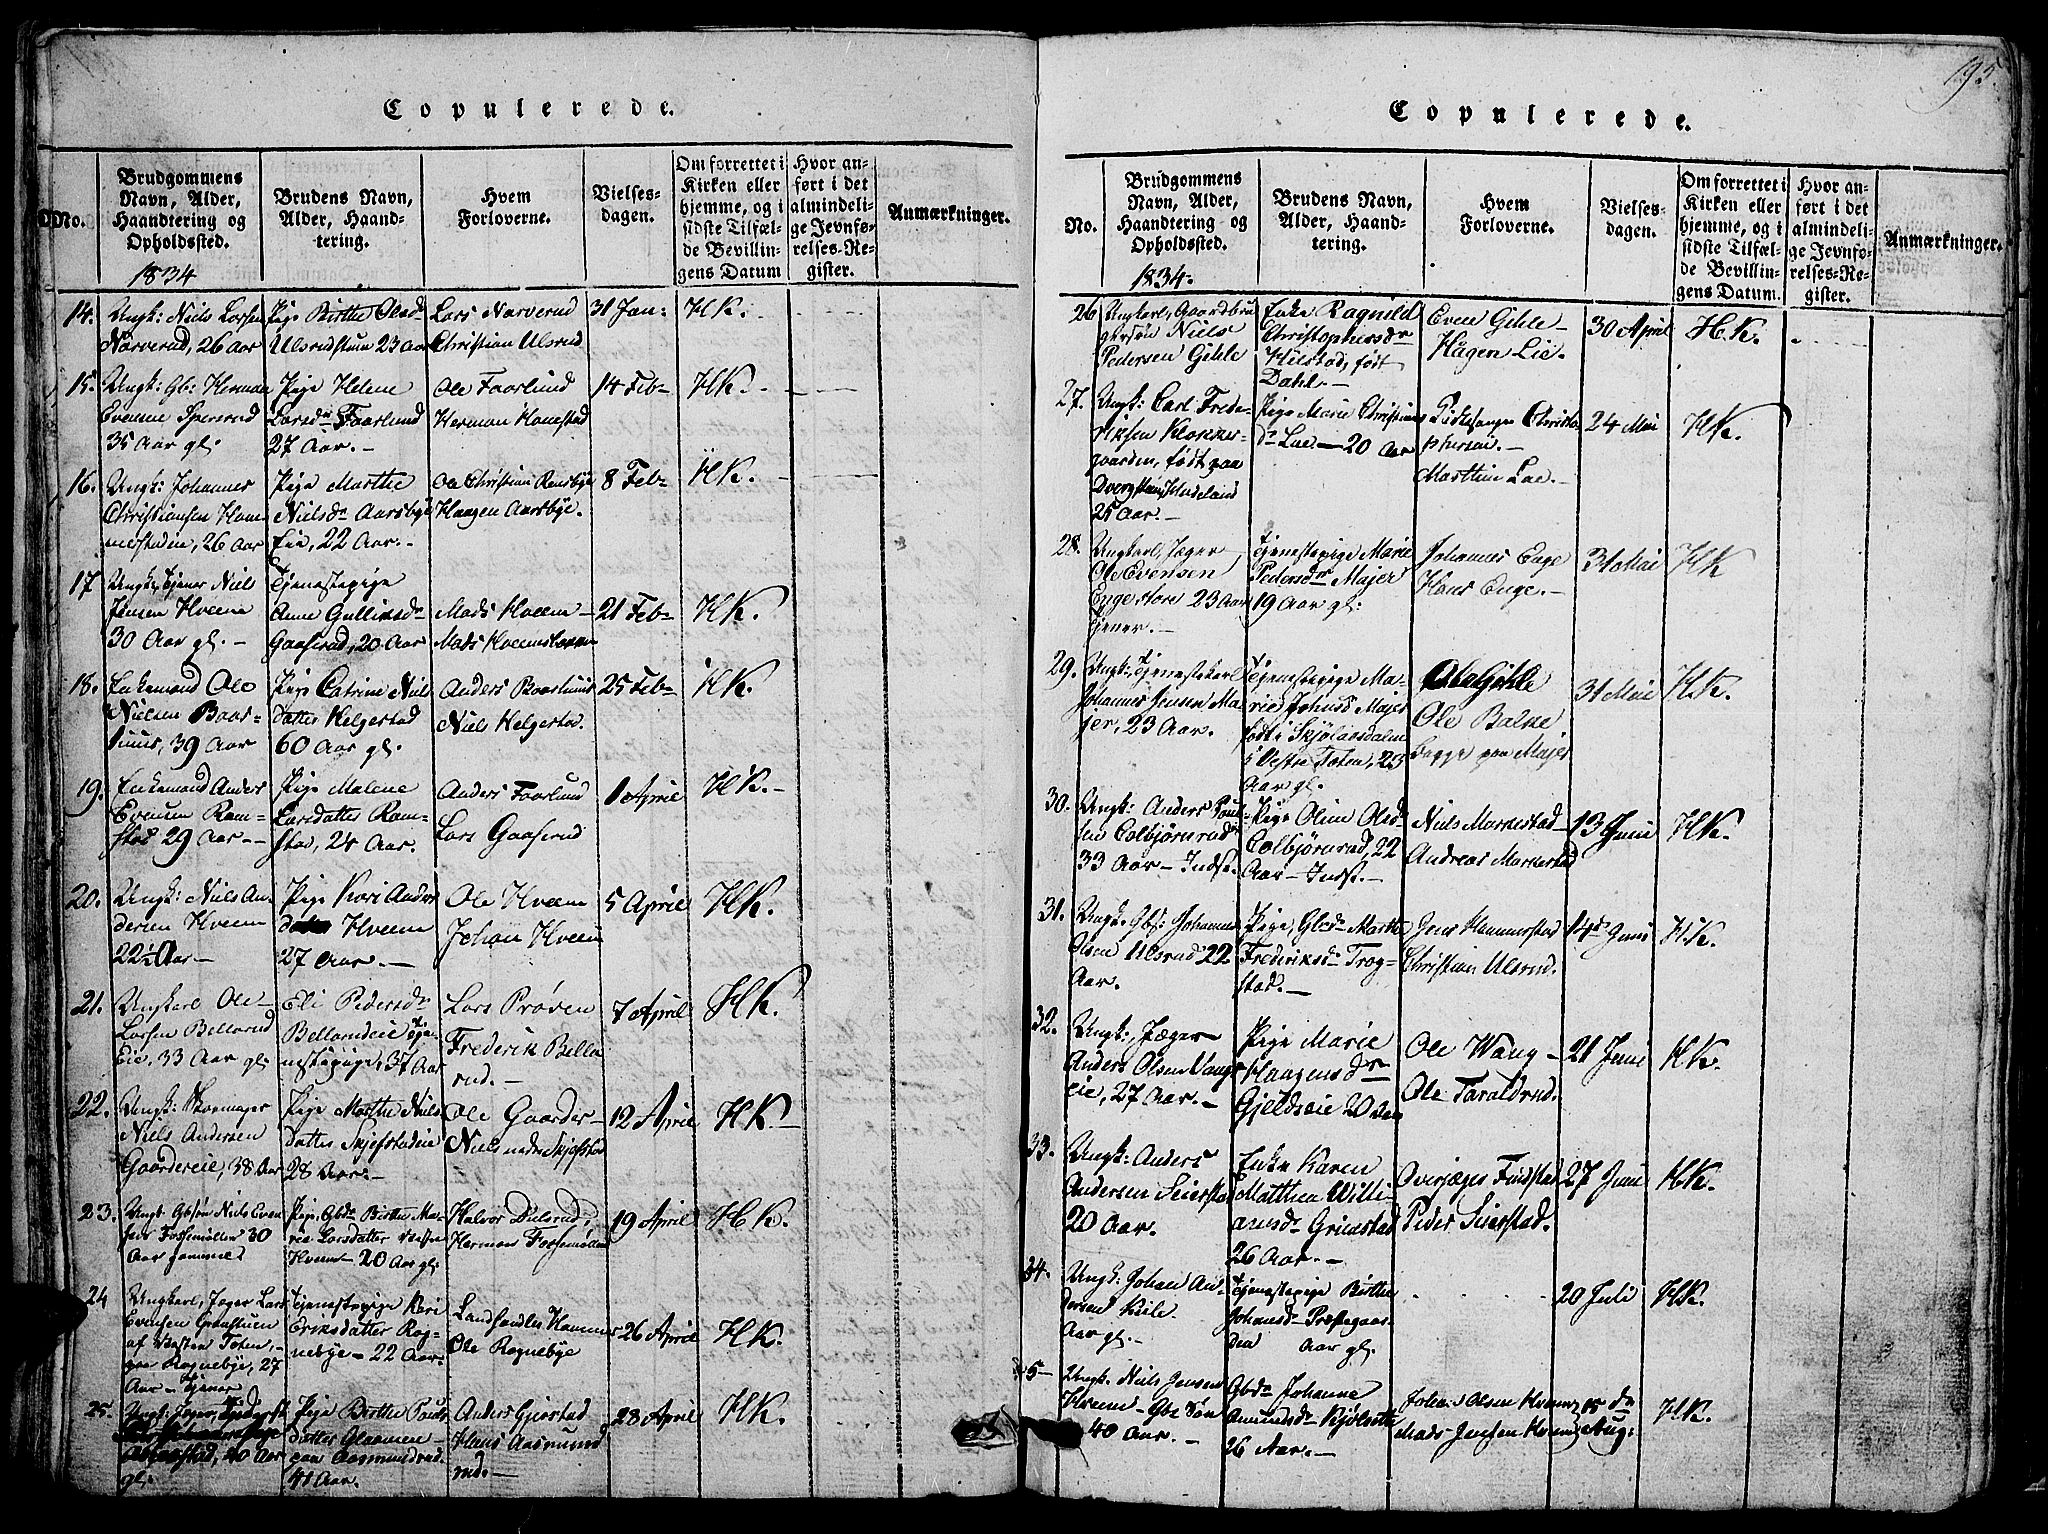 195.
Copulerede.
No.
Brudgommens
Navn, Alder,
Haandtering og
Opholdssted.
1834
Brudens Navn,
Alder, Haand-
tering.
Hvem
Forloverne.
Vielses-
dagen.
Om forrettet i
Kirken eller
hjemme, og i
sidste Tilfæl-
de Bevillin-
gens Datum
Hvor an-
ført i det
almindeli-
ge Jevnfø-
relses-Re-
gister.
Anmærkninger.
14. Ungk: Niels Larsen
Narverud, 26 Aar
Pige Birthe Olsdr
Ulsrudstuen 23 Aar
Lars Narverud
Christian Ulsrud
31 Jan:
HK.
15. Ungk: Gb: Herman
Evenne Spersrud
35 Aar gl.
Pige Helene
Larsdr Faarlund
27 Aar.
Ole Faarlund
Herman Honestad
14 Feb
HK.
16. Ungk: Johannes
Christiansen Ham-
mestadeie, 26 Aar
Pige Marthe
Nielsdr Aarsbye
Eie, 22 Aar.
Christian Ramsbye
Haagen Aarsbye.
8 Feb
HK.
17 Ungk, Tjener Niels
Jensen Hveem
30 Aar gl.
Tjenestepige
Anne Gulliksdr
Gaaserud, 20 Aar
Mads Hveem
Mads Hveemshagen
21 Feb
HK.
18. Enkemand Ole
Nielsen Baas-
luus, 39 Aar
Pige Catrine Niels
datter Helgestad
60 Aar gl.
Anders Baasluus
Niels Helgestad.
25 Feb
HK.
19. Enkemand Anders
Evensen Ram-
stad 29 Aar
Pige Malene
Larsdatter Ram-
stad, 24 Aar.
Anders Faarlund
Lars Gaaserud
1 April
HK.
20. Ungk: Niels An-
dersen Hveem
22½ Aar
Pige Kari Anders
datter Hveem
27 Aar.
Ole Hveem
Johan Hveem
5 April
HK.
21. Ungkarl Ole
Larsen Bellerud
Eie, 33 Aar gl.
Eli Pedersdr
Bellerudeie Tje-
nestepige, 37 Aar
Lars Prøven
Frederik Belle
rud.
7 April
HK.
22. Ungk: Skomager
Niels Andersen
Gaardereie, 38 Aar
Pige Marthe Niels
datter Skjefstadeie
28 Aar.
Ole Gaarder
Niels nedre Skjefstad
12 April
HK.
23. Ungk. Gbsøn Niels Even
sen Fossemøllen 30
Aar gammel
Pige, Gbdr Birthe Ma-
rie Larsdatter Vestre
Hveem 20 Aar gl.
Halvor Dulsrud,
Herman Fossemøllen
19 April
HK.
24 Ungkarl, Jæger Lars
Evensen Grønstuen
af Vesten Toten,
paa Rognebye, 27
Aar Tjener
Tjenestepige Kari
Eriksdatter Rog-
nebye 22 Aar.
Landhandler Hammer
Ole Rognebye
26 April
HK.
25.
40 Aar
gl.
Pige Birthe Pouls
datter Glaamen
paa Aasmundrud
41 Aar.
Anders Gjerstad
Hans Aasmund
rud.
28 April
HK.
Copulerede.
No.
Brudgommens
Navn, Alder,
Haandtering og
Opholdssted.
1834.
Brudens Navn,
Alder, Haand-
tering.
Hvem
Forloverne.
Vielses-
dagen.
Om forrettet i
Kirken eller
hjemme, og i
sidste Tilfæl-
de Bevillin-
gens Datum.
Hvor an-
ført i det
almindeli-
ge Jevnfø-
relses-Re-
gister.
Anmærkninger.
26 Ungkarl, Gaardbru
gersøn Niels
Pedersen Gihle
Enke Ragnild
Christophersdr
Hilstad, født
Dahl.
Even Gihle
Hagen Lie.
30 April
H.K.
27. Ungk: Carl Frede-
riksen Klokker-
gaarden, født paa
Hadeland
25 Aar.
Pige Marie Christians
dr Lae 20 Aar
Christo-
phersen.
Marthin Lae.
24 Mai
HK.
28. Ungkarl, Jæger
Ole Evensen
Enge store 23 Aar
Tjener.
Tjenestepige Marie
Pedersdr Majer
19 Aar gl.
Johannes Enge
Hans Enge.
31 Mai
HK
29. Ungk: Tjenestekarl
Johannes Jensen Ma-
jer, 23 Aar.
Tjenestepige Ma-
rie Johansd Majer
født i Skjølaasdalen
i Vestre Toten, 23
Aar gl.
Ole Gihle
Ole Balke
begge paa Majer
31 Mai
HK.
30. Ungk: Anders Poul-
sen Colbjørnrud
33 Aar Indst.
Pige Oline Olsdr
Colbjørnrud, 22
Aar Indst.
Niels Markestad
Andreas Markestad
13 Juni
HK.
31. Ungk. Gbs: Johannes
Olsen Ulsrud 22
Aar.
Pige, Gbdr Marthe
Frederiksdr Trog-
stad.
Jens Hammerstad
Christian Ulsrud.
14de Juni
HK.
32. Ungk: Jæger
Anders Olsen Vangs
eie, 27 Aar.
Pige Marie
Haagensdr
Gjeldseie 20 Aar
Ole Wang
Ole Taraldrud.
21 Juni
HK.
33. Ungk: Anders
Andersen Seierstad
20 Aar.
Enke Karen
Matthea Willi-
amsdr Grimstad
26 Aar.
Overjæger Findstad
Peder Seierstad.
27 Juni
HK.
34. Ungk: Johan An-
dersen Kile.
Aar gl.
Tjenestepige Birthe
Johansd Præstegaar-
den Aar gl.
20 Juli
HK.
5 Ungk. Niels Jensen
Hveem Gbr Søn
40 Aar.
Gbdr Johanne
Amundsdr Kjølseth
26 Aar.
Johan Olsen Hveem
Mads Jensen Hveem
15 dn
Aug:
HK.